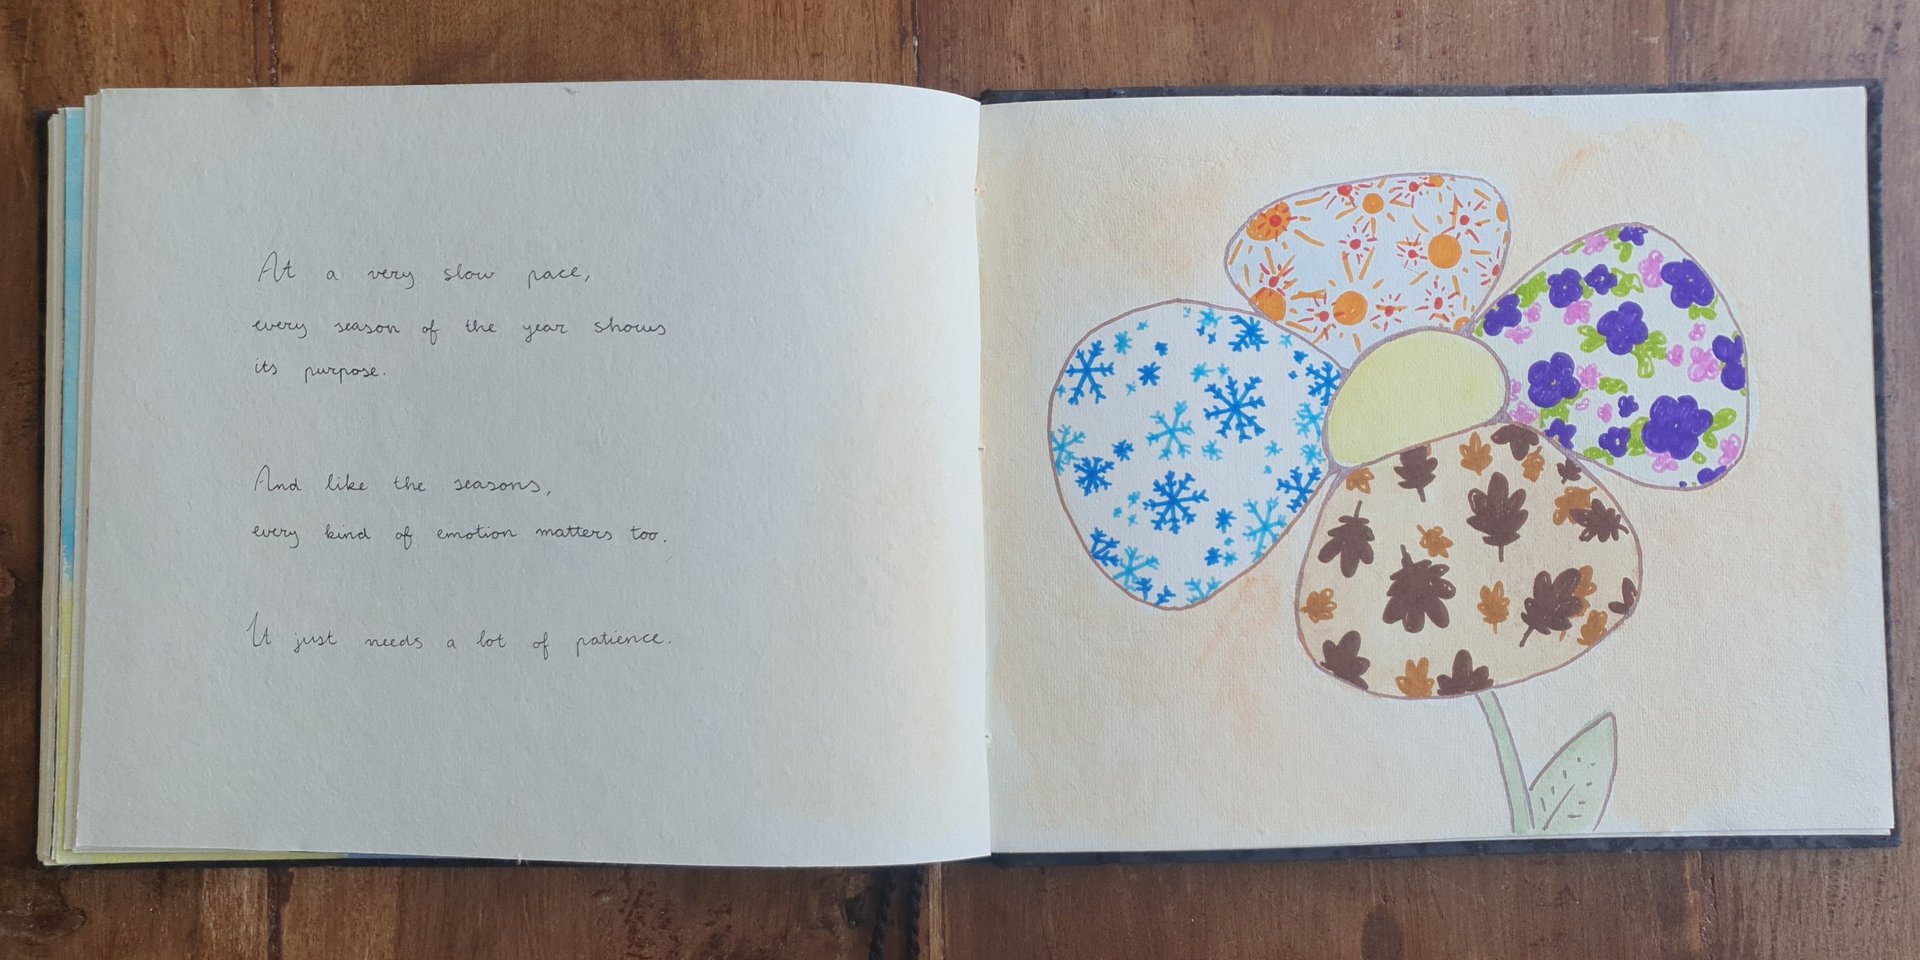 At a very slow pace,
every season of the year shows
its purpose.
And like the seasons,
every kind of emotion matters too.
It just needs a lot of patience.